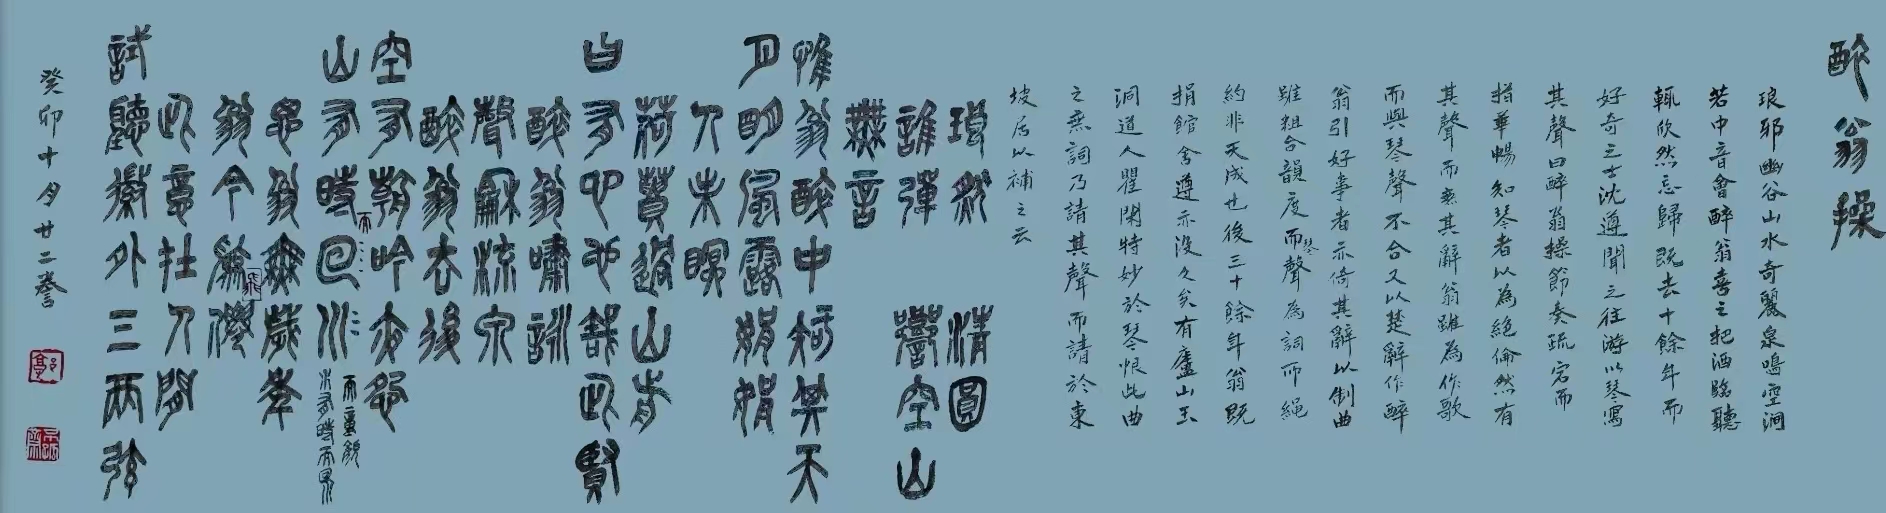 醉翁操
琅邪幽谷山水奇麗泉鳴空澗
若中音會醉翁喜之把酒臨聽
輒欣然忘歸既去十餘年而
好奇之士沈遵聞之往游以琴寫
其聲曰醉翁操節奏疏宕而
指華暢知琴者以為絕倫然有
其聲而無其辭翁雖為作歌
而與琴聲不合又以楚辭作醉
翁引好事者亦倚其辭以制曲
雖粗合韻度而琴聲為詞所繩
約非天成也後三十餘年翁既
捐館舍遵亦沒久矣有廬山玉
洞道人瞿閑特妙於琴恨此曲
之無詞乃請其聲而請於東
坡居以補之云
琅然 清圓
誰彈 響空山
無言
惟翁醉中知其天
月明風露娟娟
人未眠
荷蕢過山前
曰有心也哉此賢
醉翁嘯詠
聲和流泉
醉翁去後
空有朝吟夜怨
山有時而回川
而童巔
水有時而回川
思翁無歲年
翁今為飛僊
此意在人間
試聽徽外三兩弦
癸卯十月廿二